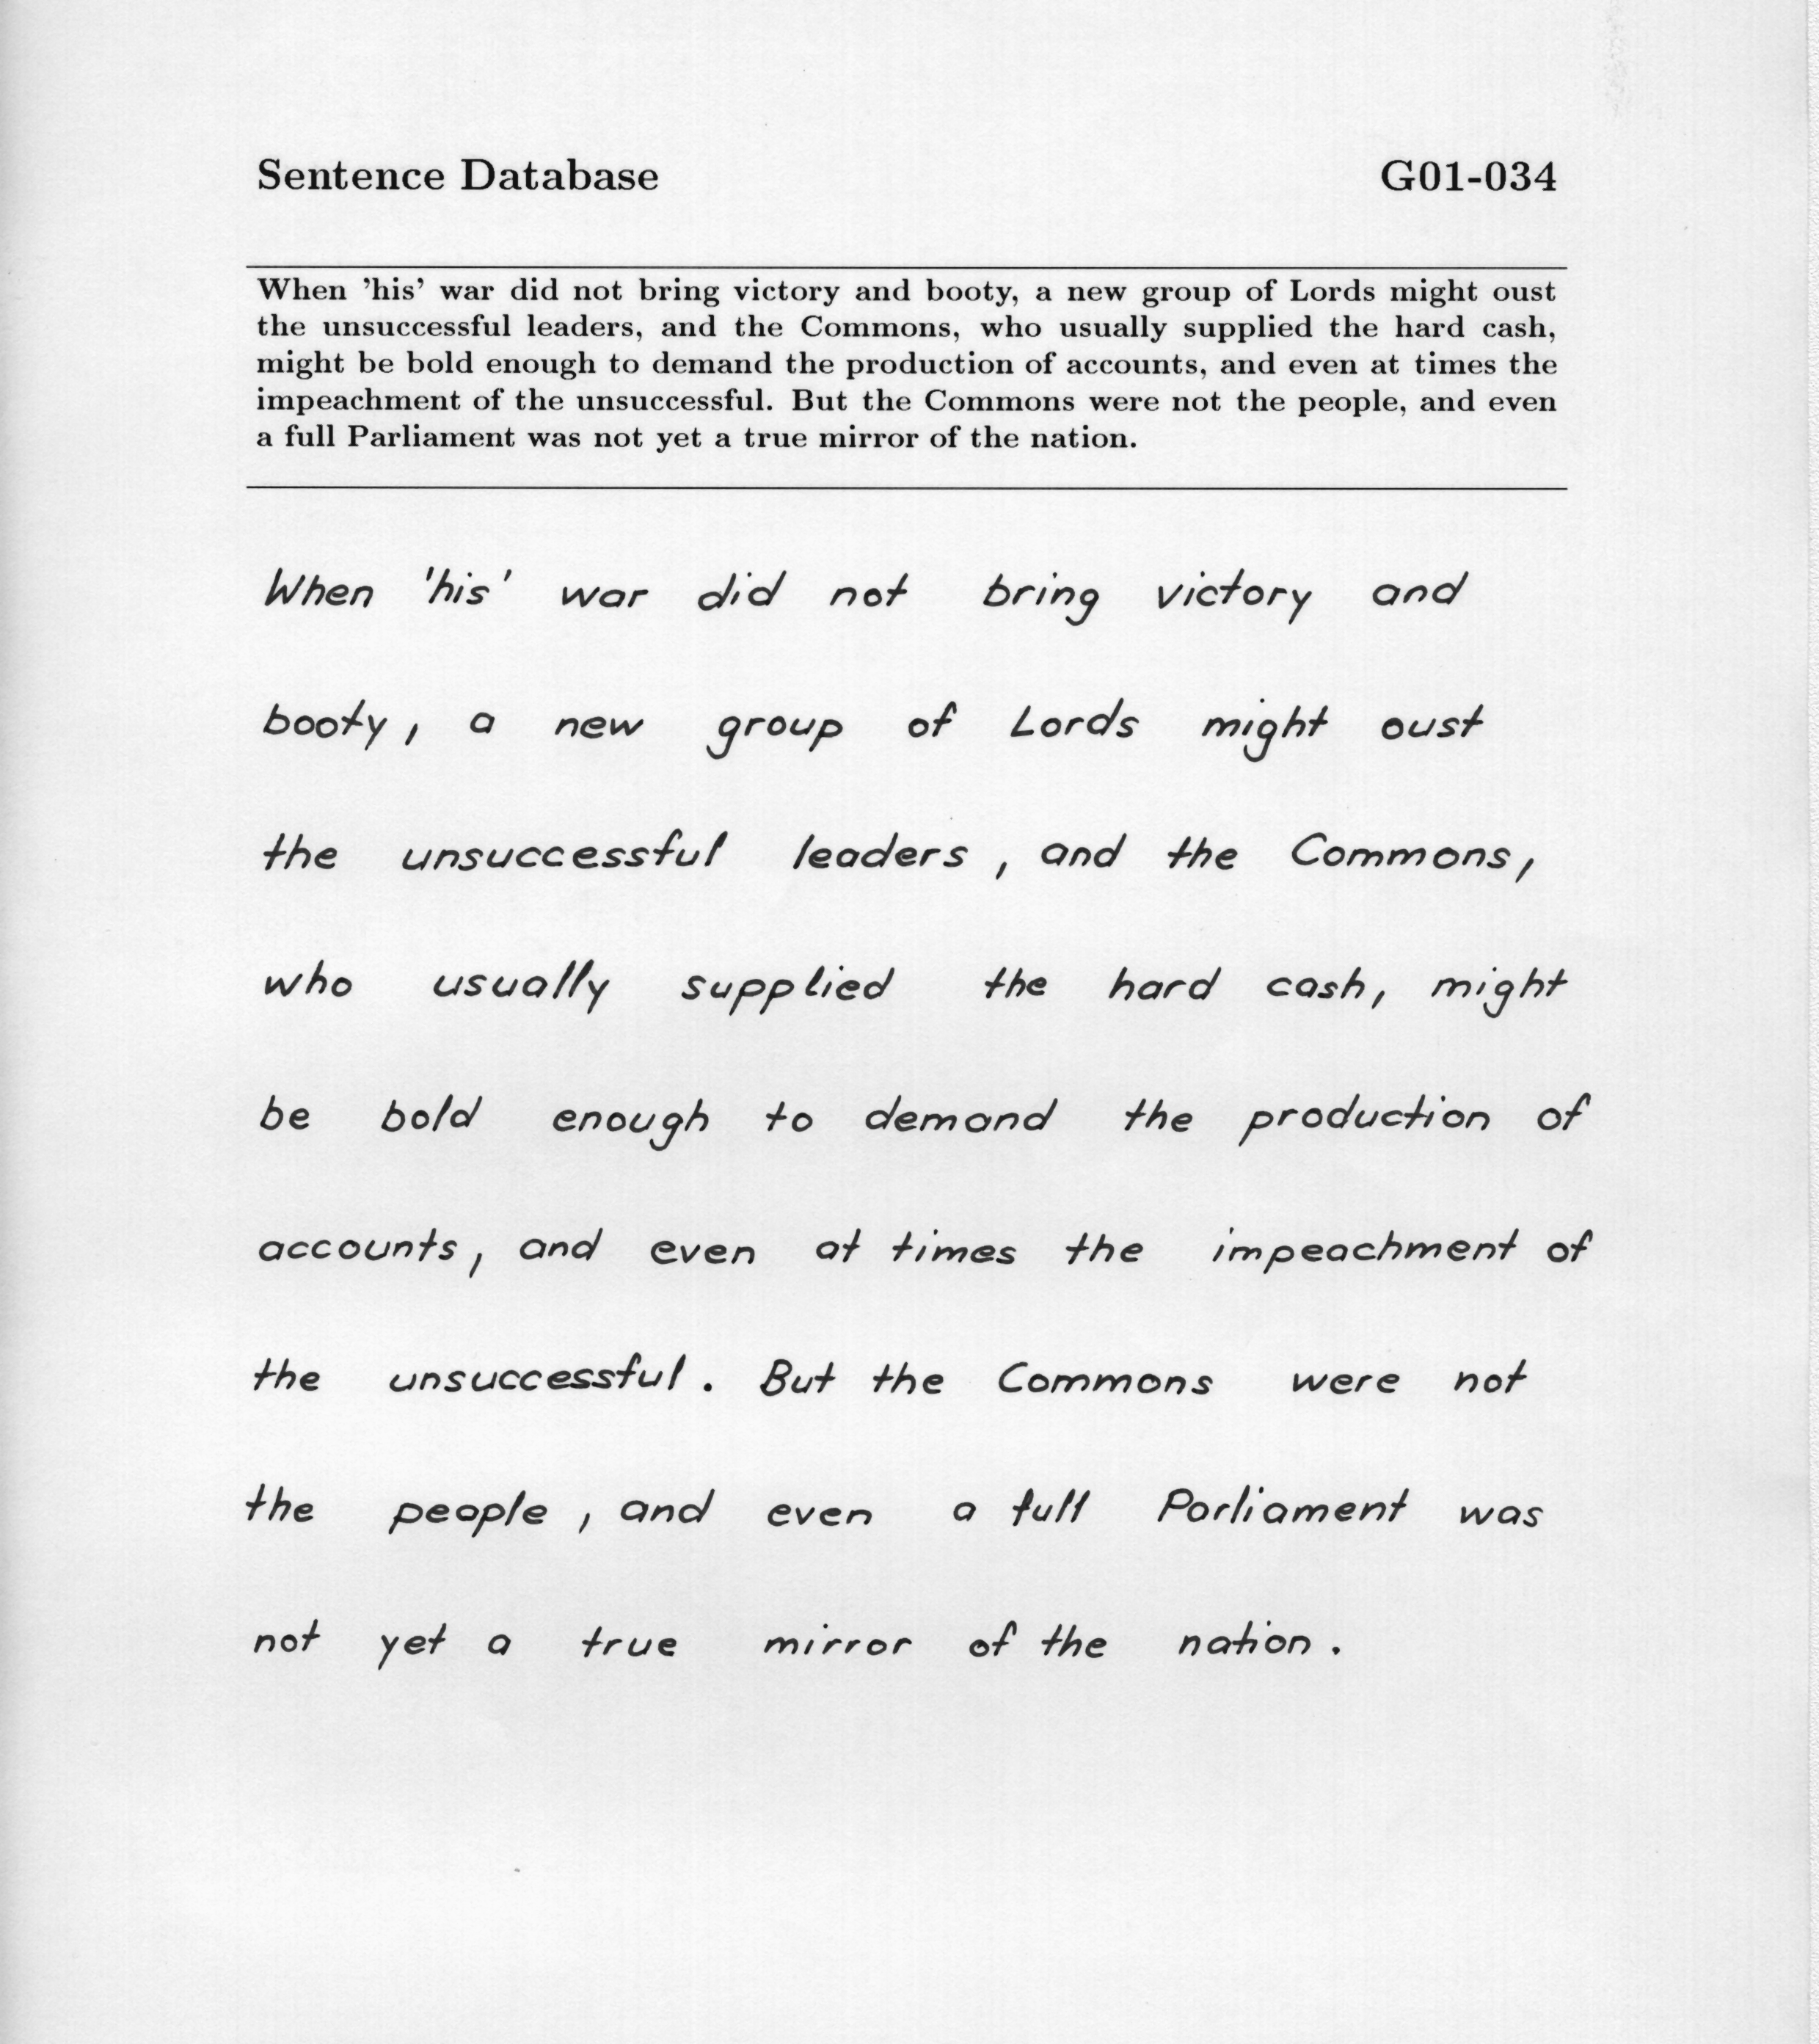 Sentence Database G01-034
When 'his' war did not bring victory and booty, a new group of Lords might oust
the unsuccessful leaders, and the Commons, who usually supplied the hard cash,
might be bold enough to demand the production of accounts, and even at times the
impeachment of the unsuccessful. But the Commons were not the people, and even
a full Parliament was not yet a true mirror of the nation.
When 'his' war did not bring victory and
booty, a new group of Lords might oust
the unsuccessful leaders, and the Commons,
who usually supplied the hard cash, might
be bold enough to demand the production of
accounts, and even at times the impeachment of
the unsuccessful. But the Commons were not
the people, and even a full Parliament was
not yet a true mirror of the nation.